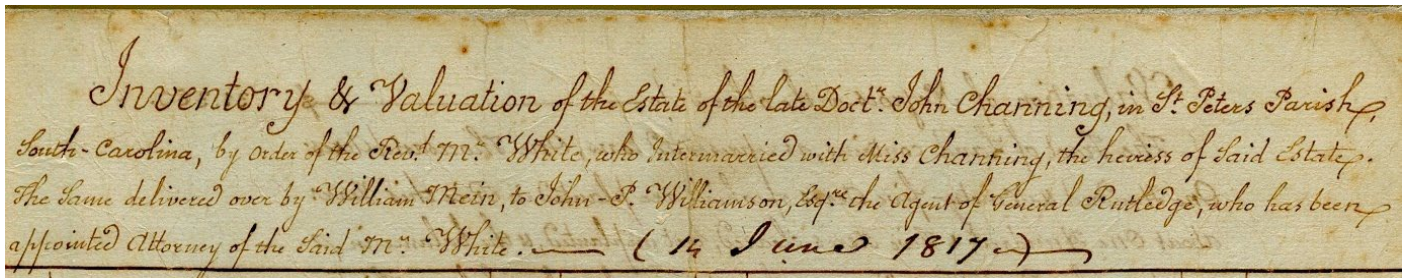 Inventory & Valuation of the Estate of the late Doctr. John Channing, in St. Peters Parish,
South-Carolina, by order of the Revd. Mr. White, who Intermarried with Miss Channing, the heiress of Said Estate.
The Same delivered over by William Mein, to John-P. Williamson, Esqre. the Agent of General Rutledge, who has been
appointed Attorney of the Said Mr. White. — (14 June 1817)